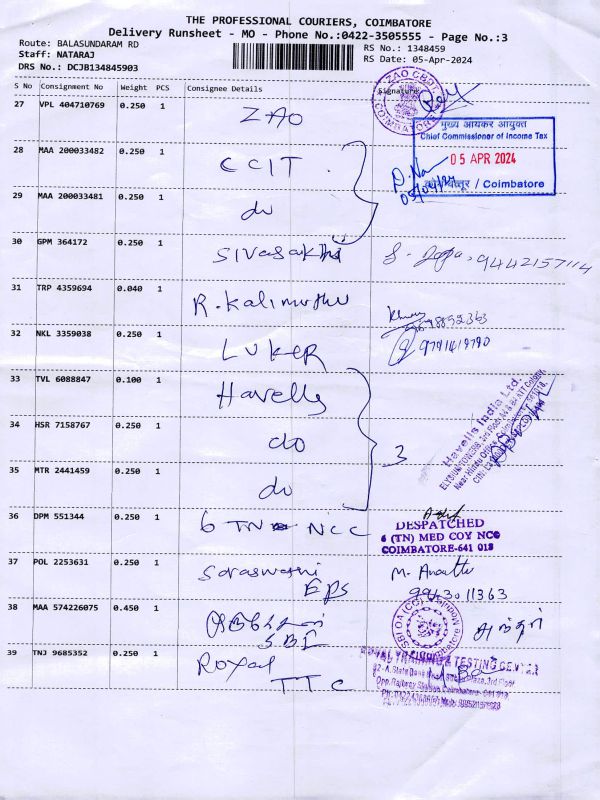 THE PROFESSIONAL COURIERS, COIMBATORE
Delivery Runsheet - MO - Phone No.:0422-3505555 - Page No.:3
Route: BALASUNDARAM RD
RS No.: 1348459
Staff: NATARAJ
RS Date: 05-Apr-2024
DRS No.: DCJB134845903
S No Consignment No Weight PCS Consignee Details Signature
27 VPL 404710769 0.250 1 ZAO
28 MAA 200033482 0.250 1 CCIT
मुख्य आयकर आयुक्त
Chief Commissioner of Income Tax
05 APR 2024
/ Coimbatore
29 MAA 200033481 0.250 1 do
30 GPM 364172 0.250 1 Sivasakthi 9442157114
31 TRP 4359694 0.040 1 R. Kalimuthu
32 NKL 3359038 0.250 1 LUKER 9791419790
33 TVL 6088847 0.100 1 Havells
Havells India Ltd.
34 HSR 7158767 0.250 1 do
3
35 MTR 2441459 0.250 1 do
36 DPM 551344 0.250 1 6 TN NCC
DESPATCHED
6 (TN) MED COY NCC
COIMBATORE-641 018
37 POL 2253631 0.250 1 Saraswathi
EPS
9943011363
38 MAA 574226075 0.450 1
S.B.I
39 TNJ 9685352 0.250 1 Royal
T T C
TRAINING & TESTING CENTER
Opp. Railway Station, Coimbatore